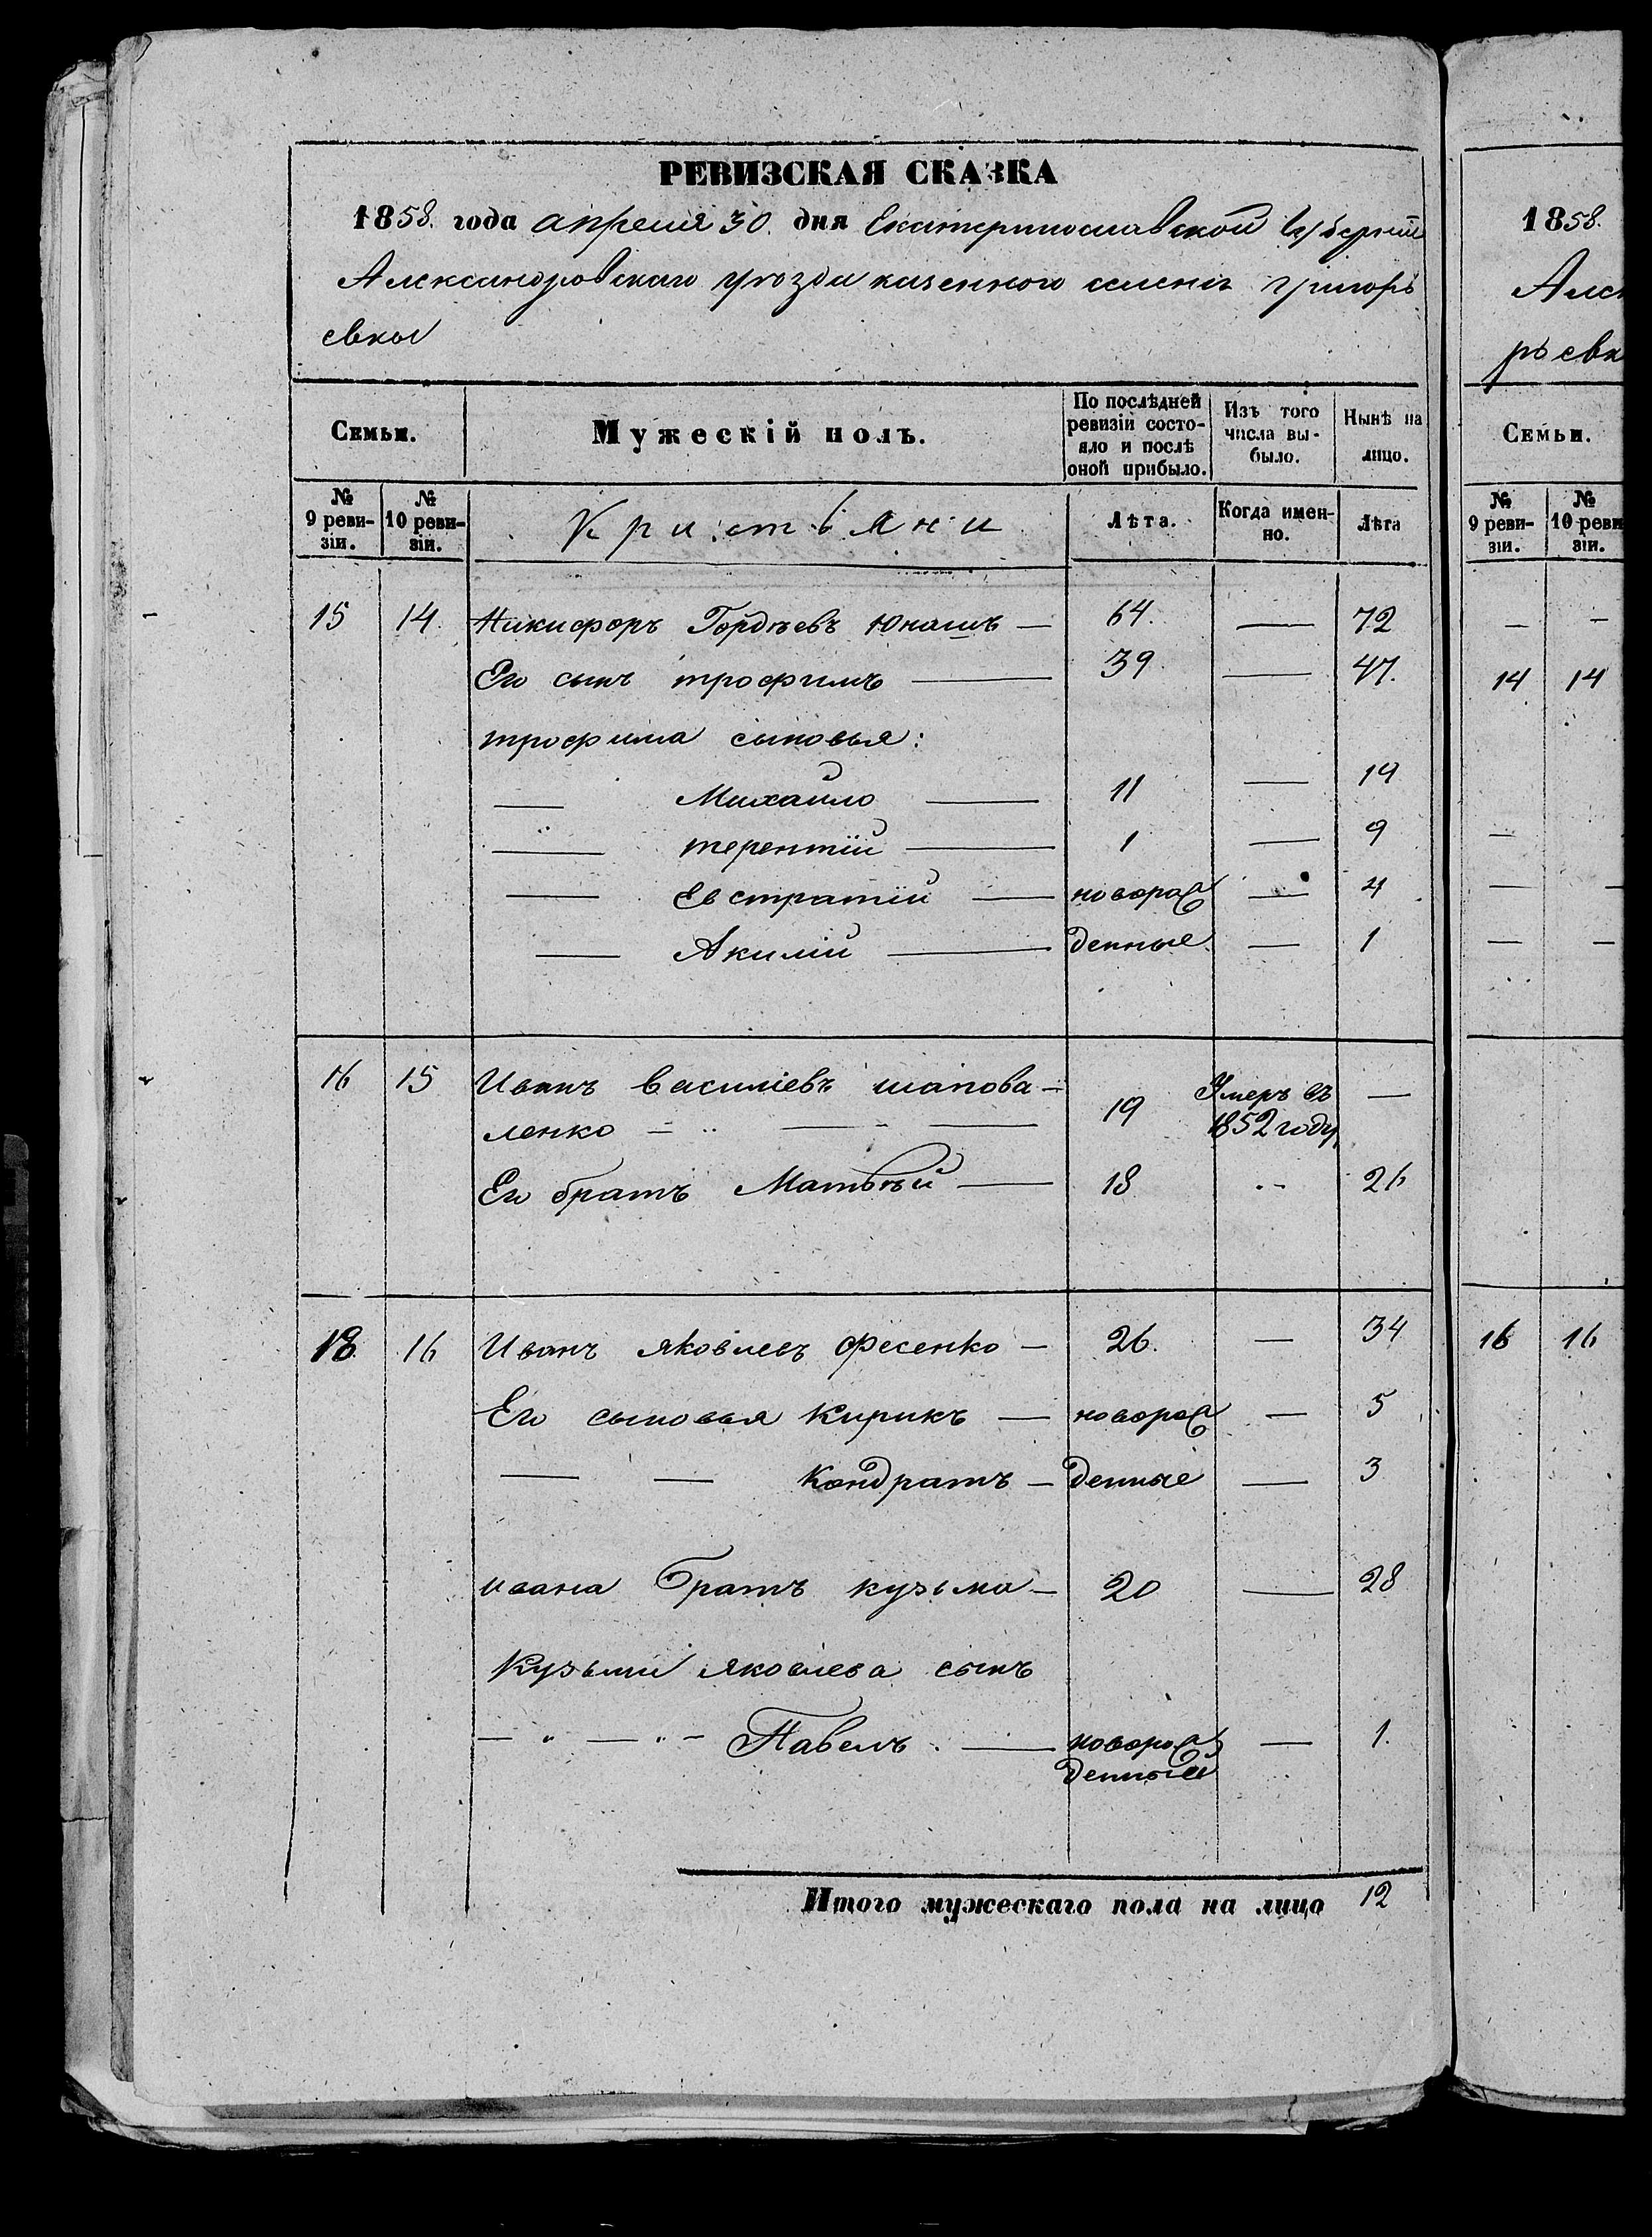 РЕВИЗСКАЯ СКАЗКА
1858. года апреля 30. дня Екатеринославской Губерніи
Александровскаго уѣзда казенного селенія Григорь
евки
Семьи. Мужескій полъ. По послѣдней ревизіи состо-яло и послѣ оной прибыло. Изъ того числа вы-было. Нынѣ на лицо.
№ 9 реви-зіи. № 10 реви-зіи. Кристьяни Лѣта. Когда имен-но. Лѣта
15 14. Никифоръ Гордѣевъ Юнашъ — 64. — 72
Его сынъ трофимъ — 39. — 47.
трофима сыновья:
— Михайло — 11 — 19
— терентій — 1 — 9
— Евстратій — новорож — 4
— Акилій — денные — 1
16 15 Иванъ Василіевъ шапова-
ленко — 19 Умеръ въ 1852 году —
Его братъ Матвѣй — 18 26
18. 16 Иванъ яковлевъ Фесенко — 26. — 34
Его сыновья Кирикъ — новорож — 5
— — Кондратъ — денные — 3
ивана братъ кузьма — 20 — 28
Кузьми яковлева сынъ
— " — " — Павелъ. — новорож — 1.
денный
Итого мужескаго пола на лицо 12
1858.
Алек
рьевк
Семьи.
№ 9 реви-зіи. № 10 реви зіи.
— —
14 14
—
— —
— —
16 16